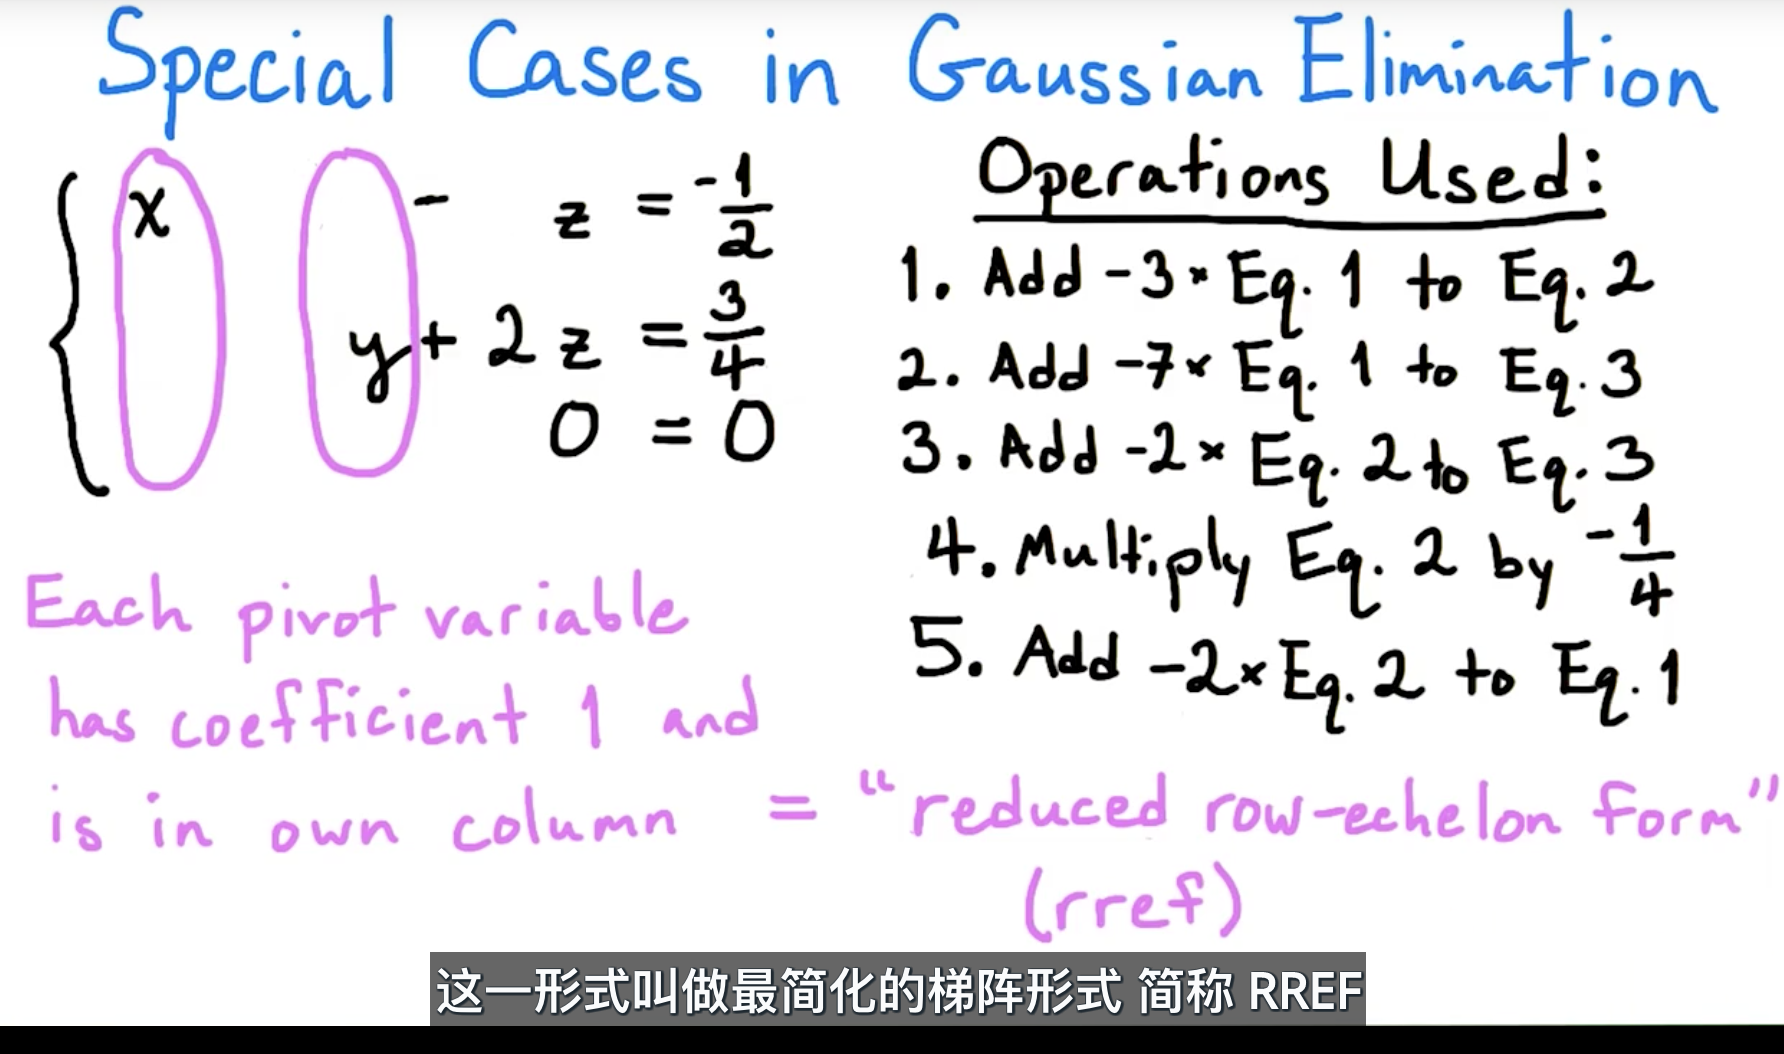 Special Cases in Gaussian Elimination
x - z = -1/2
y + 2z = 3/4
0 = 0
Operations Used:
1. Add -3 × Eq. 1 to Eq. 2
2. Add -7 × Eq. 1 to Eq. 3
3. Add -2 × Eq. 2 to Eq. 3
4. Multiply Eq. 2 by -1/4
5. Add -2 × Eq. 2 to Eq. 1
Each pivot variable
has coefficient 1 and
is in own column = "reduced row-echelon form"
(rref)
这一形式叫做最简化的梯阵形式 简称 RREF